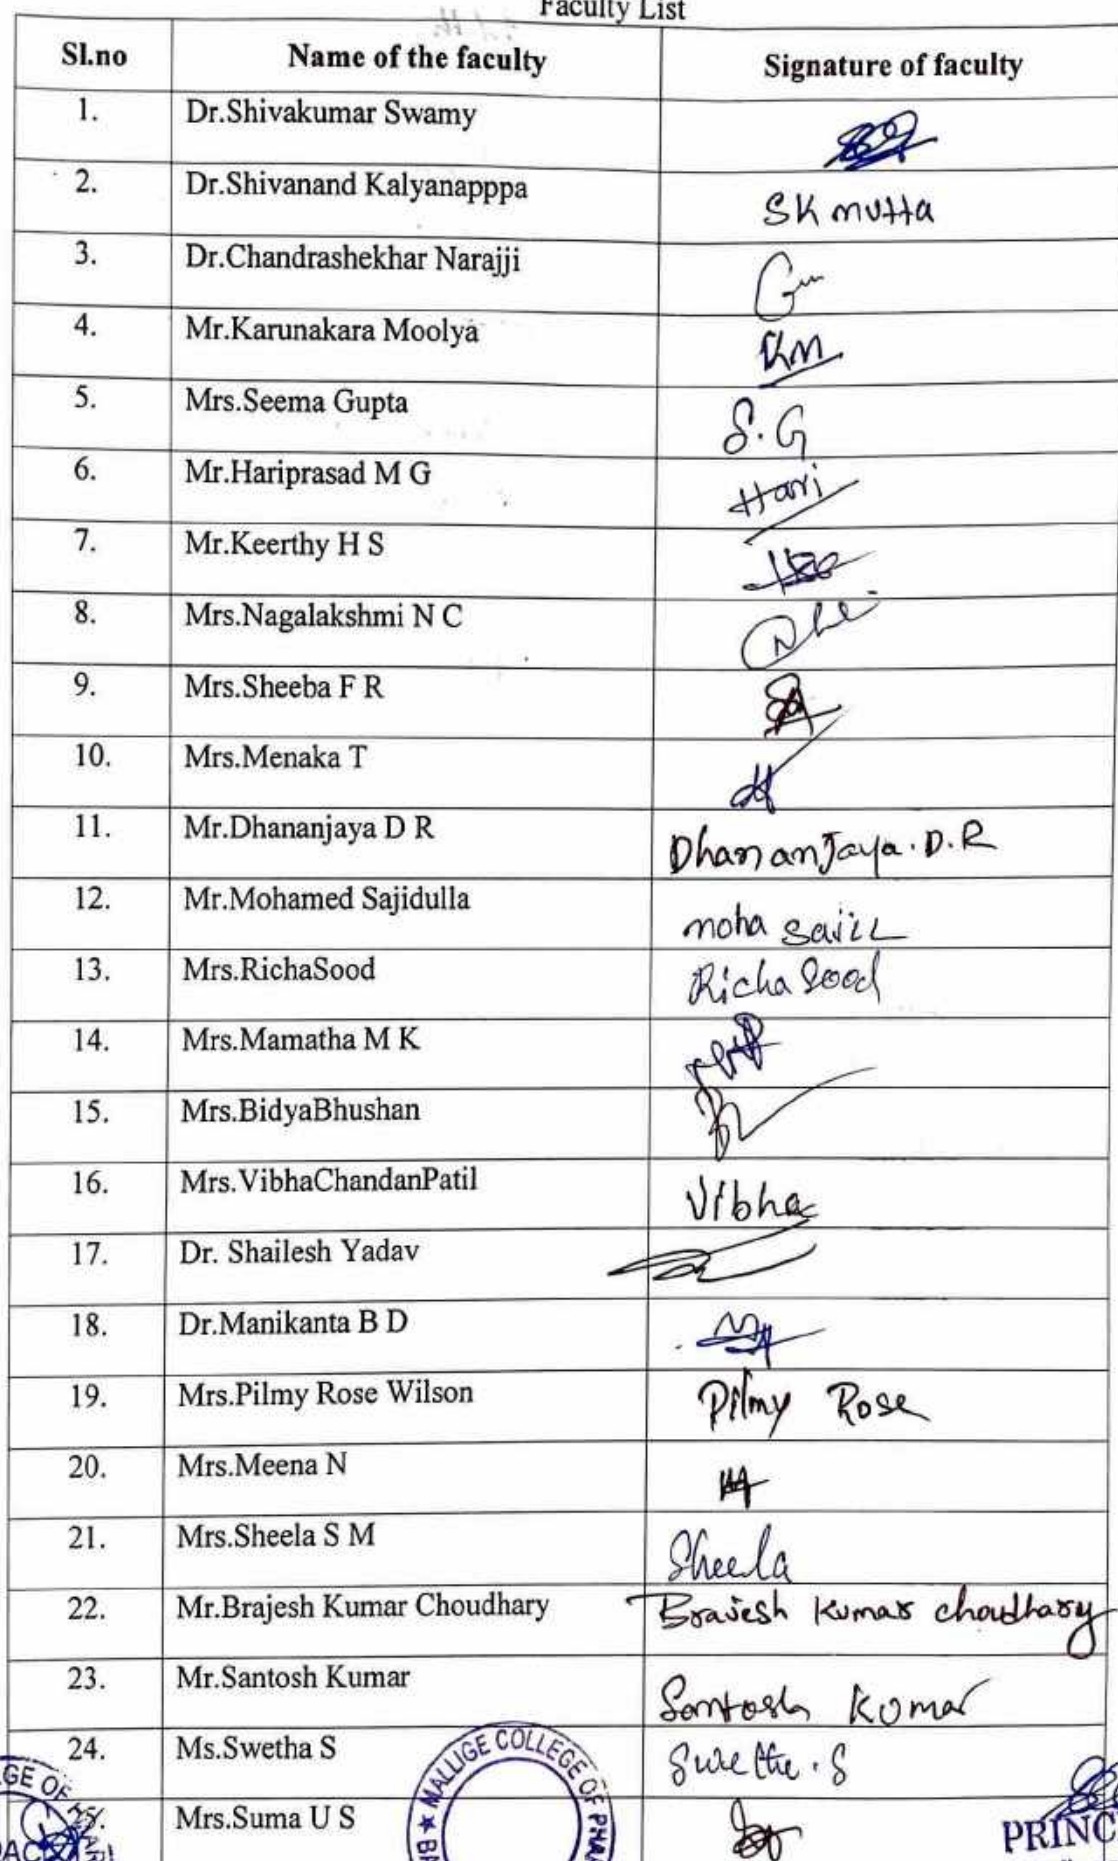 Faculty List
Sl.no Name of the faculty Signature of faculty
1. Dr.Shivakumar Swamy
2. Dr.Shivanand Kalyanapppa SK mutta
3. Dr.Chandrashekhar Narajji
4. Mr.Karunakara Moolya KM
5. Mrs.Seema Gupta S.G
6. Mr.Hariprasad M G Hari
7. Mr.Keerthy H S
8. Mrs.Nagalakshmi N C
9. Mrs.Sheeba F R
10. Mrs.Menaka T
11. Mr.Dhananjaya D R Dhananjaya.D.R
12. Mr.Mohamed Sajidulla moha
13. Mrs.RichaSood Richa Sood
14. Mrs.Mamatha M K
15. Mrs.BidyaBhushan
16. Mrs.VibhaChandanPatil Vibha
17. Dr. Shailesh Yadav
18. Dr.Manikanta B D
19. Mrs.Pilmy Rose Wilson Pilmy Rose
20. Mrs.Meena N
21. Mrs.Sheela S M Sheela
22. Mr.Brajesh Kumar Choudhary Brajesh Kumar choudhary
23. Mr.Santosh Kumar Santosh Kumar
24. Ms.Swetha S Swetha.S
25. Mrs.Suma U S
★ MALLIGE COLLEGE OF PHAR
GE OF
PRINC